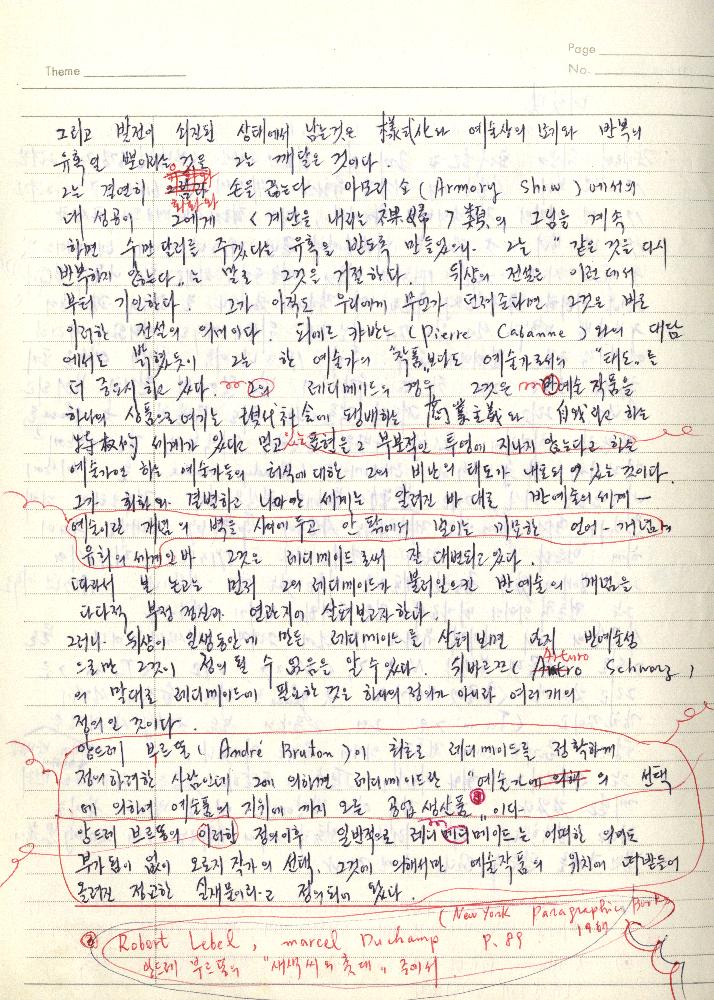 Page
Theme
No.
그리고 발전이 쇠진된 상태에서 남는것은 樣式化와 예술상의 반복의
유혹일 뿐이라는 것을 그는 깨달은 것이다
그는 결연히 손을 끊는다 아모리 쇼 (Armory Show) 에서의
회화와
대성공이 그에게 <계단을 내려오는 裸婦> 類의 그림을 계속
하면 수만달러를 주겠다는 유혹을 받도록 만들었으나. 그는 "같은 것을 다시
반복하지 않는다" 는 말로 그것을 거절하다. 뒤샹의 전설은 이런데서
부터 기인한다. 그가 아직도 우리에게 무언가 던져준다면 그것은 바로
이러한 전설의 의미이다. 피에르 캬반느 (Pierre Cabanne) 와의 대담
에서도 밝혔듯이 그는 한 예술가의 "작품"보다도 예술가로서의 "태도"를
더 중요시 하고 있다. 그의 레디메이드의 경우 그것은 반예술작품을
하나의 상품으로 여기는 社会에 팽배하는 商業主義와 하는
세계가 있다고 믿고 표현을 그 부분적인 투영에 지나지 않는다고 하는
예술가인 하는 예술가들의 허식에 대한 그의 비난의 태도가 내포되어 있는 것이다.
그가 회화와 결별하고 나아간 세계는 알려진 바 대로 반예술의 세계 —
예술이란 개념의 벽을 사이에 두고 안팎에서 벌이는 미묘한 언어-개념의
유희의 세계인바 그것은 레디메이드로써 잘 대변되고 있다.
따라서 본 논고는 먼저 그의 레디메이드가 불러일으킨 반예술의 개념을
다다적 부정정신과 연관지어 살펴보고자한다.
그러나 뒤샹이 일생동안에 만든 레디메이드를 살펴보면 단지 반예술성
으로만 그것이 정의 될 수 없음을 알 수 있다. 쉬바르쯔 (Arturo Schwarz)
의 말대로 레디메이드에 필요한 것은 하나의 정의가 아니라 여러개의
정의일 것이다.
앙드레 브르똥 (André Bruton) 이 최초로 레디메이드를 정확하게
정의하려한 사람인데 그에 의하면 레디메이드란 "예술가의 선택
에 의하여 예술품의 지위에 까지 오른 공업생산품" 이다.
앙드레 브르똥의 이러한 정의이후 일반적으로 레디메이드는 어떠한 의미도
부가됨이 없이 오로지 작가의 선택, 그것에 의해서만 예술작품의 위치에 떠받들어
올려진 진고한 실재물이라고 정의되어 왔다.
(New York Paragraphic Books
Robert Lebel, marcel Duchamp P. 89 1967
앙드레 부르똥의 "새색씨의 촛대" 중에서